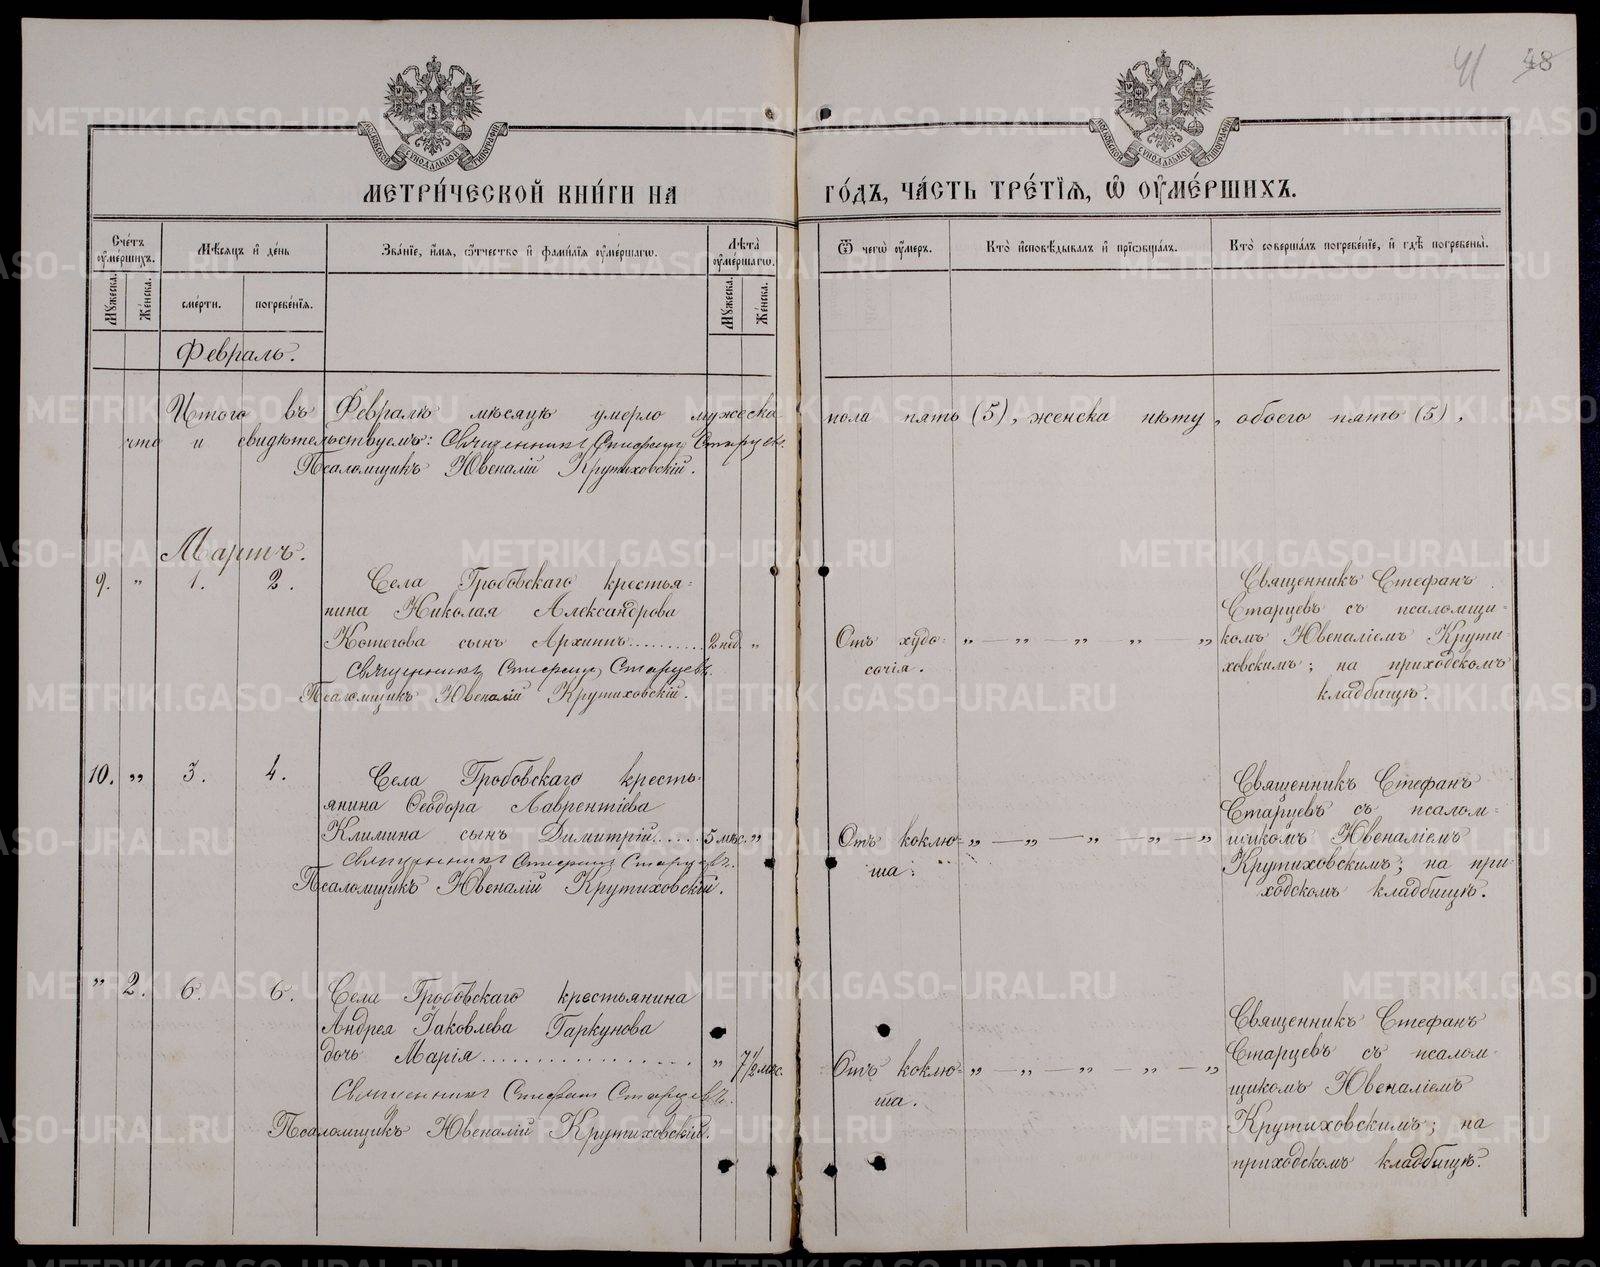 41 48
МЕТРИ́ЧЕСКОЙ КНИ́ГИ НА ГО́ДЪ, ЧА́СТЬ ТРЕ́ТІЯ, Ѿ ОУМЕ́РШИХЪ.
Сче́тъ оуме́ршихъ.
Мѣ́сяцъ и де́нь
Зва́ніе, и́мя, о́тчество и фами́лія оуме́ршагω.
Лѣта̀ оуме́ршагω.
Ѿ чегὼ оу́меръ.
Кто̀ исповѣ́дывалъ и пріѡбща́лъ.
Кто̀ соверша́лъ погребе́ніе, и гдѣ̀ погребены̀.
Му́жеска.
Же́нска.
сме́рти.
погребе́нія.
Му́жеска.
Же́нска.
Февраль.
Итого въ Февралѣ мѣсяцѣ умерло мужеска пола пять (5), женска нѣту, обоего пять (5),
что и свидѣтельствуемъ: Священникъ Стефанъ Старцевъ.
Псаломщикъ Ювеналій Крутиховскій.
Мартъ.
9. „ 1. 2. Села Гробовскаго крестья=
нина Николая Александрова
Котегова сынъ Архипъ.......... 2 нед. „
Священникъ Стефанъ Старцевъ.
Псаломщикъ Ювеналій Крутиховскій.
Отъ худо=
сочія.
„ — „ — „ „ — „
Священникъ Стефанъ
Старцевъ съ псаломщи-
комъ Ювеналіемъ Крути-
ховскимъ; на приходскомъ
кладбищѣ.
10. „ 3. 4. Села Гробовскаго кресть-
янина Ѳеодора Лаврентіева
Климина сынъ Димитрій...... 5 мѣс. „
Священникъ Стефанъ Старцевъ.
Псаломщикъ Ювеналій Крутиховскій.
Отъ коклю=
ша.
„ — „ — „ — „ — „
Священникъ Стефанъ
Старцевъ съ псалом-
щикомъ Ювеналіемъ
Крутиховскимъ; на при-
ходскомъ кладбищѣ.
„ 2. 6. 6. Села Гробовскаго крестьянина
Андрея Іаковлева Гаркунова
дочь Марія.................. „ 7½ мѣс.
Священникъ Стефанъ Старцевъ.
Псаломщикъ Ювеналій Крутиховскій.
Отъ коклю=
ша.
„ — „ — „ — „ — „
Священникъ Стефанъ
Старцевъ съ псалом-
щикомъ Ювеналіемъ
Крутиховскимъ; на
приходскомъ кладбищѣ.
METRIKI.GASO-URAL.RU